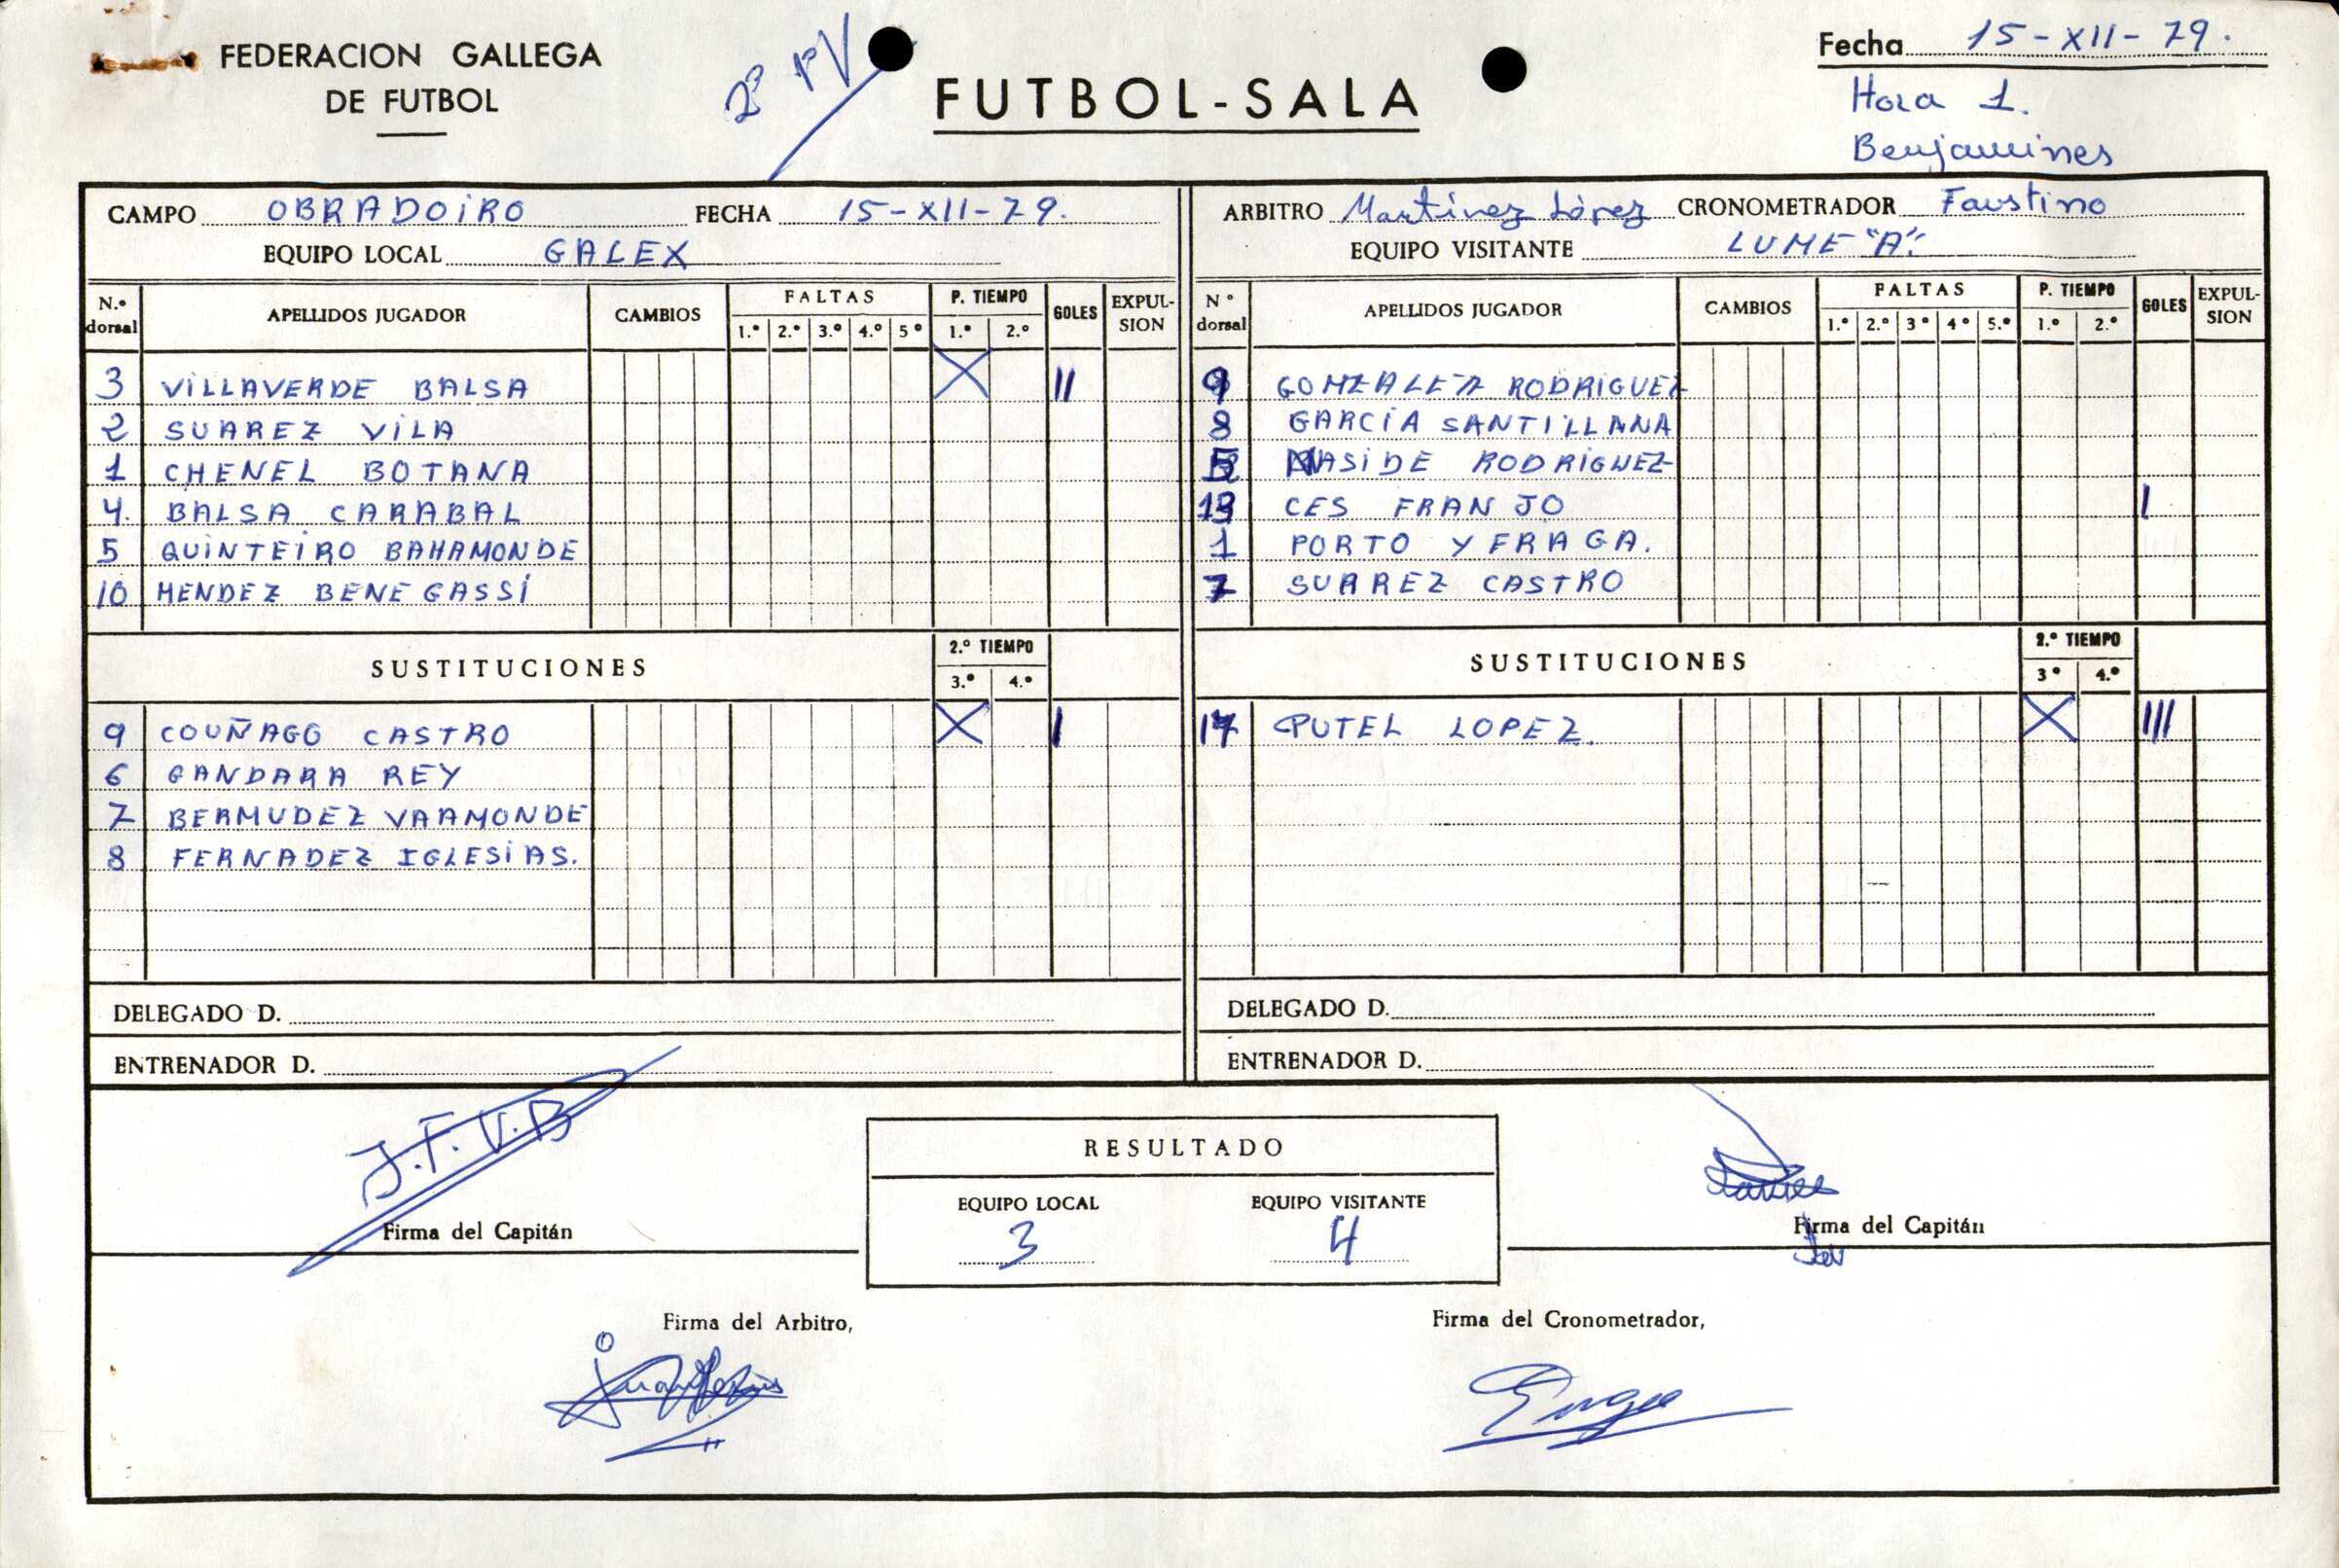 FEDERACION GALLEGA
DE FUTBOL
FUTBOL-SALA
Fecha 15-XII-79.
Hora 1.
Benjamines
CAMPO OBRADOIRO FECHA 15-XII-79.
EQUIPO LOCAL GALEX
N.º dorsal APELLIDOS JUGADOR CAMBIOS FALTAS 1.ª 2.ª 3.ª 4.ª 5ª P. TIEMPO 1.º 2.º GOLES EXPULSION
3 VILLAVERDE BALSA X II
2 SUAREZ VILA
1 CHENEL BOTANA
4. BALSA CARABAL
5 QUINTEIRO BAHAMONDE
10 MENDEZ BENEGASSI
SUSTITUCIONES 2.º TIEMPO 3.º 4.º
9 COUÑAGO CASTRO X I
6 GANDARA REY
7 BERMUDEZ VAAMONDE
8 FERNADEZ IGLESIAS.
DELEGADO D.
ENTRENADOR D.
ARBITRO Martínez López CRONOMETRADOR Faustino
EQUIPO VISITANTE LUME "A".
Nº dorsal APELLIDOS JUGADOR CAMBIOS FALTAS 1.ª 2.ª 3ª 4ª 5.ª P. TIEMPO 1.º 2.º GOLES EXPULSION
GONZALEZ RODRIGUEZ
8 GARCIA SANTILLANA
5 MASIDE RODRIGUEZ
13 CES FRANJO I
1 PORTO Y FRAGA.
7 SUAREZ CASTRO
SUSTITUCIONES 2.º TIEMPO 3º 4.º
PUTEL LOPEZ. X III
DELEGADO D.
ENTRENADOR D.
J.F.V.B
Firma del Capitán
RESULTADO
EQUIPO LOCAL EQUIPO VISITANTE
3 4
Firma del Capitán
Firma del Arbitro,
Firma del Cronometrador,